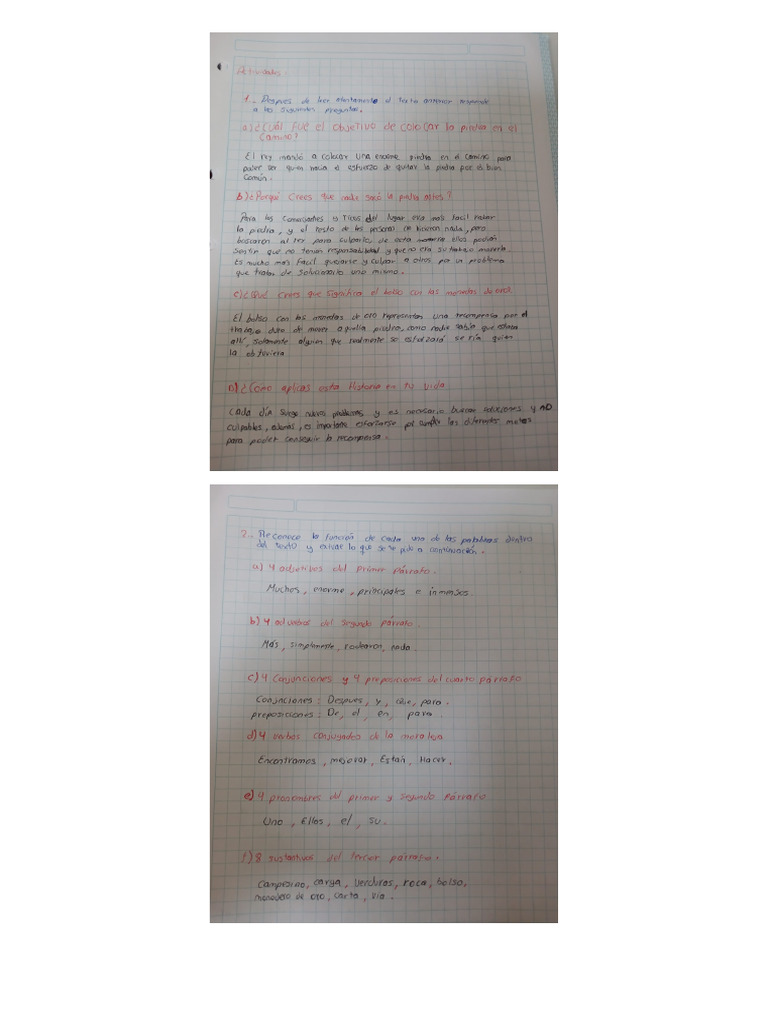 Actividades
1.- Despues de leer atentamente el texto anterior responde
a las siguientes preguntas.
a) ¿Cuál fue el objetivo de colocar la piedra en el
camino?
El rey mandó a colocar una enorme piedra en el camino para
poder ver quien hacia el esfuerzo de quitar la piedra por el bien
común.
b) ¿Porqué crees que nadie sacó la piedra antes?
Para los comerciantes y ricos del lugar era más facil rodear
la piedra, y el resto de las personas no hicieron nada, pero
buscaron al rey para culparlo, de esta manera ellos podian
sentir que no tenian responsabilidad y que no era su trabajo moverla
Es mucho más facil quejarse y culpar a otros por un problema
que tratar de solucionarlo uno mismo.
c) ¿Qué crees que significa el bolso con las monedas de oro?
El bolso con las monedas de oro representan una recompensa por el
trabajo duro de mover aquella piedra, como nadie sabía que estaba
allí, solamente alguien que realmente se esforzará sería quien
la obtuviera
D) ¿Como aplicas esta Historia en tu vida
Cada día surge nuevos problemas y es necesario buscar soluciones y no
culpables, además, es importante esforzarse por cumplir las diferentes metas
para poder conseguir la recompensa.
2.- Reconoce la función de cada una de las palabras dentro
del texto y extrae lo que se te pide a continuación.
a) 4 adjetivos del primer párrafo.
Muchos, enorme, principales e inmensos
b) 4 adverbios del segundo párrafo.
Más, simplemente, rodearon, nada.
c) 4 conjunciones y 4 preposiciones del cuarto párrafo
Conjunciones: Despues, y, que, para.
preposiciones: De, el, en, para.
d) 4 verbos conjugados de la moraleja
Encontramos, mejorar, Están, Hacer.
e) 4 pronombres del primer y segundo párrafo
Uno, Ellos, el, su.
f) 8 sustantivos del tercer párrafo.
Campesino, carga, verduras, roca, bolso,
monedero de oro, carta, via.